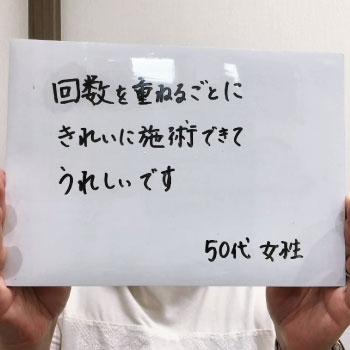 回数を重ねるごとに
きれいに施術できて
うれしいです
50代 女性